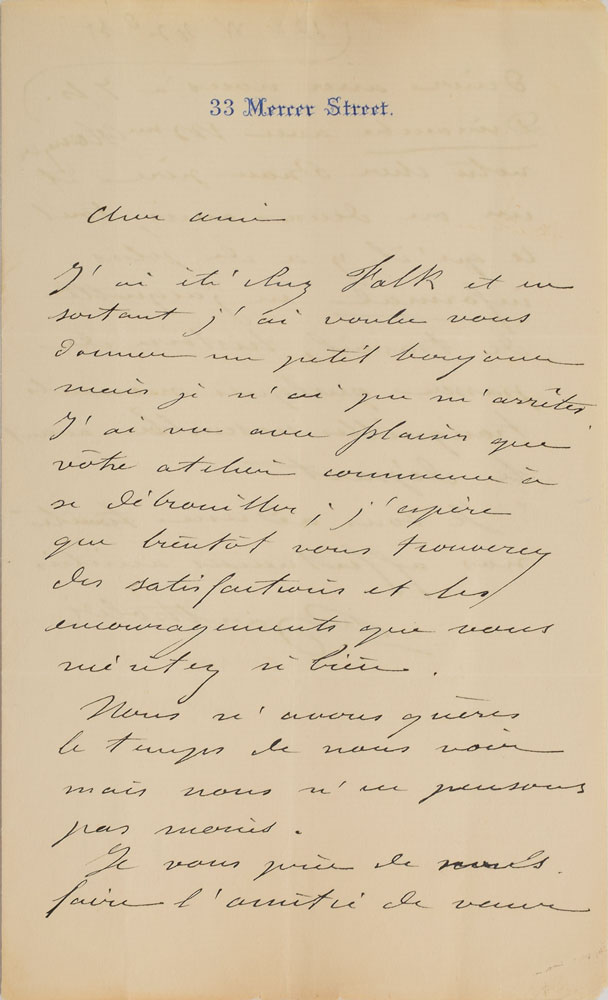 33 Mercer Street.
Cher ami
J'ai été chez Falk et en
sortant j'ai voulu vous
donner un petit bonjour
mais je n'ai pu m'arrêter
J'ai vu avec plaisir que
vôtre atelier commence à
se débrouiller ; j'espère
que bientôt vous trouverez
des satisfactions et les
encouragements que vous
méritez si bien.
Nous n'avons guères
le temps de nous voir
mais nous n'en pensons
pas moins.
Je vous prie de nous
faire l'amitié de venir